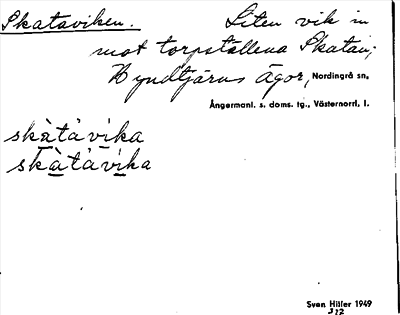 Skataviken. Liten vik in
mot torpställena Skatan;
Hyndtjärns ägor, Nordingrå sn,
Ångermanl. s. doms. tg., Västernorrl. l.
skàtávika
skàtávika
Sven Hitler 1949
312